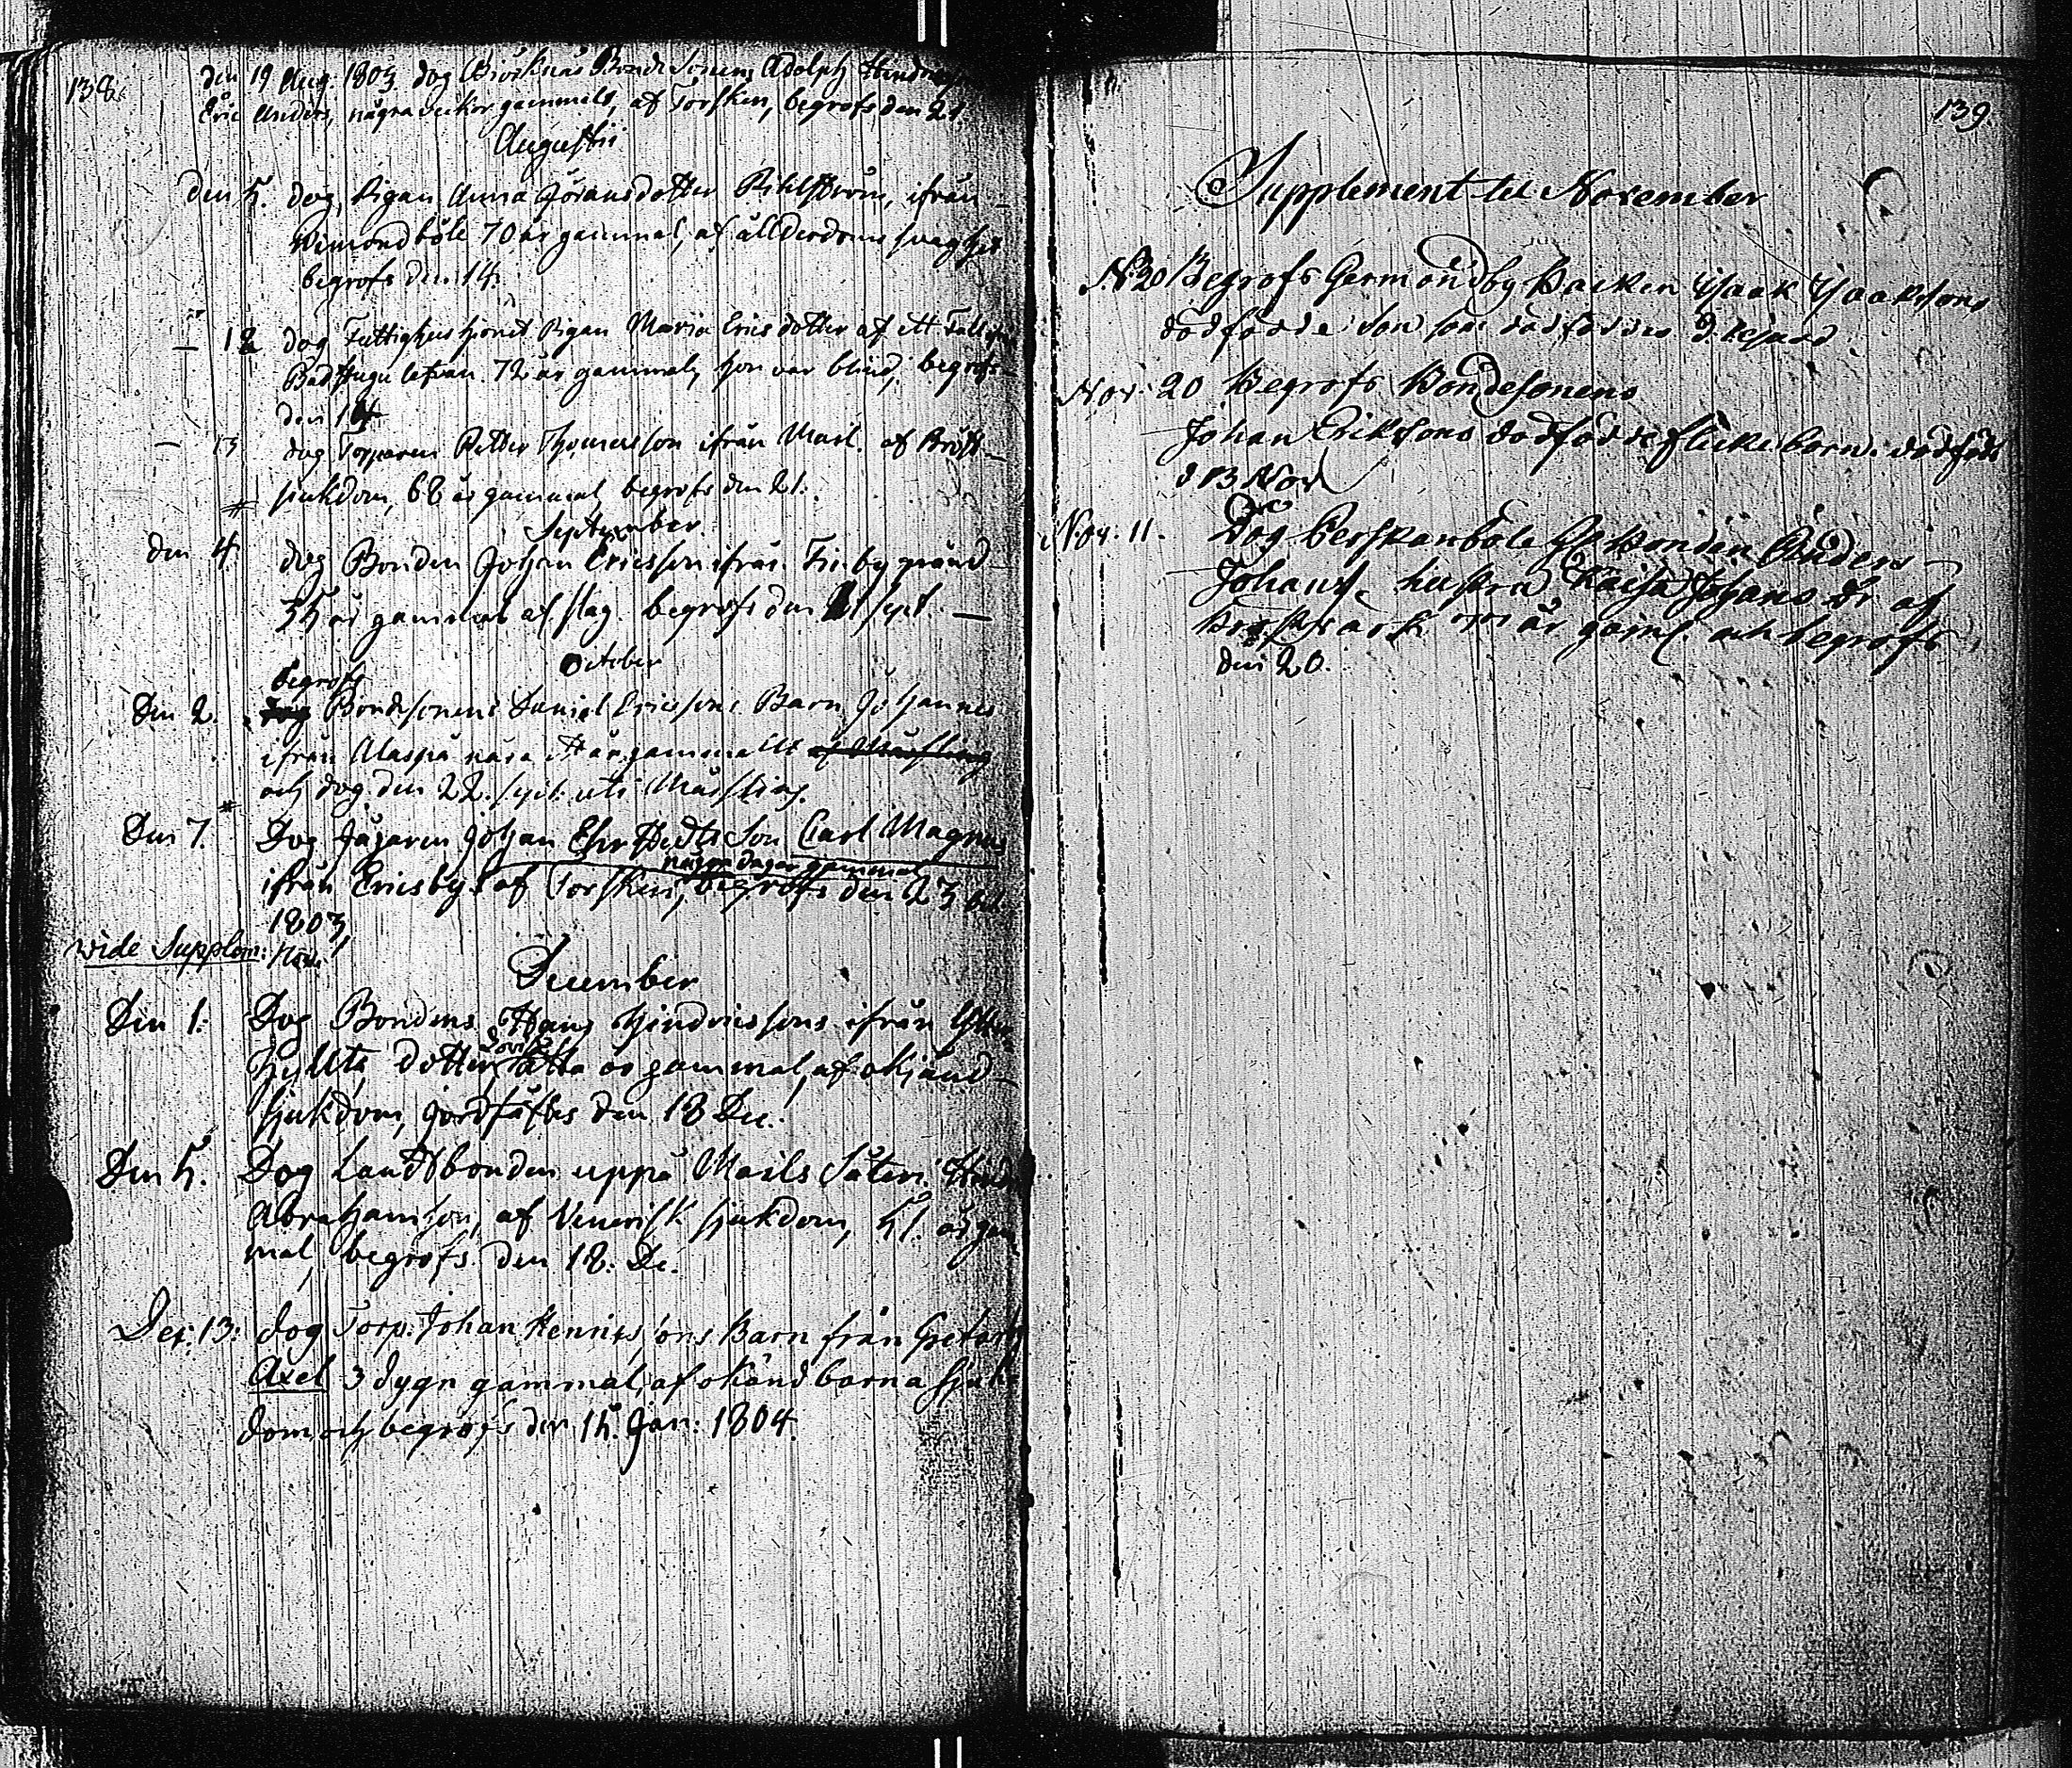 138.
den 19 Aug. 1803. dog Bondesonens Adolph
Eric Anders, några veckor gammal, af Torsken, begrofs den 21.
Augusti
den 5. dog, Pigan Anna Göransdotter ifrån
böle 70 år gammal, af ålderdoms svaghet
begrofs den 14.
— 12 dog Fattighushjonet Pigan Maria Ericsdotter af ett Fall ifrån
72 år gammal, hon var blind, begrofs
den 14
— 13 dog Torparen Petter Thomasson ifrån Marl. af Bröst
sjukdom, 68 år gammal, begrofs den 21.
September
den 4. dog Bonden Johan Ericsson ifrån Finby gränd
55 år gammal af slag. begrofs den 21 sept. —
October
begrofs
Den 2. dog Bondesonens Daniel Ericssons Barn Johannes
ifrån Alaspå nära ett år gammalt af Mässling
och dog den 22. sept. uti Mässling.
Den 7. Dog Jägaren Johan Ehrstedts Son Carl Magnus
några dagar gammal
ifrån Ericsby af Torsken, begrofs den 23
1803,
Vide Supplem: Nov.
December
Den 1. Dog Bondens Hans Hindricssons ifrån
dotter åtta år gammal, af okjänd
sjukdom, jordfästes den 18 Dec.
Den 5. Dog Landtbonden uppå Marls Säteri
Abrahamson, af Venerisk sjukdom, 51. år gam
mal, begrofs den 18. De.
Dec: 13: dog Torp. Johan Henrikssons Barn från
Axel 3 dygn gammal, af okänd barna sjuk
dom, och begrofs den 15. Jan: 1804.
139.
Supplement til November
N. 20 Begrofs Germundby Backen Isaak Isaakssons
dödfödde son som dödföddes
Nov: 20 Begrofs Bondesonens
Johan Erikssons dödfödde flickebarn. dödfödt
d 13 Nov
Nov. 11. Dog Berskanböle Bonden Anders
Johanss. hustru Kaisa Johans Dr af
år gaml. och begrofs
den 20.